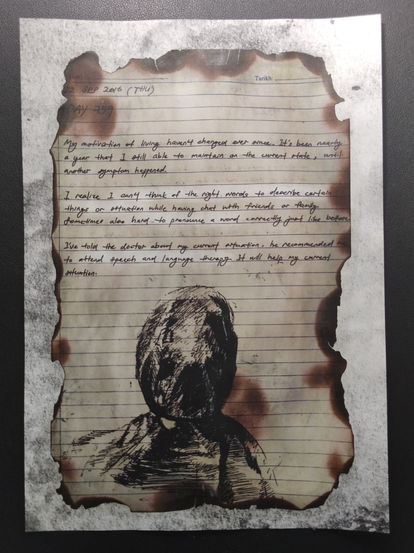 Tarikh:
22 SEP 2016 (THU)
DAY 299
My motivation of living haven't changed ever since. It's been nearly
a year that I still able to maintain on the current state, until
another symptom happened.
I realize I can't think of the right words to describe certain
things or situation while having chat with friends or family.
Sometimes also hard to pronounce a word correctly just like before.
I've told the doctor about my current situation. he recommended
to attend speech and language therapy. It will help my current
situation.